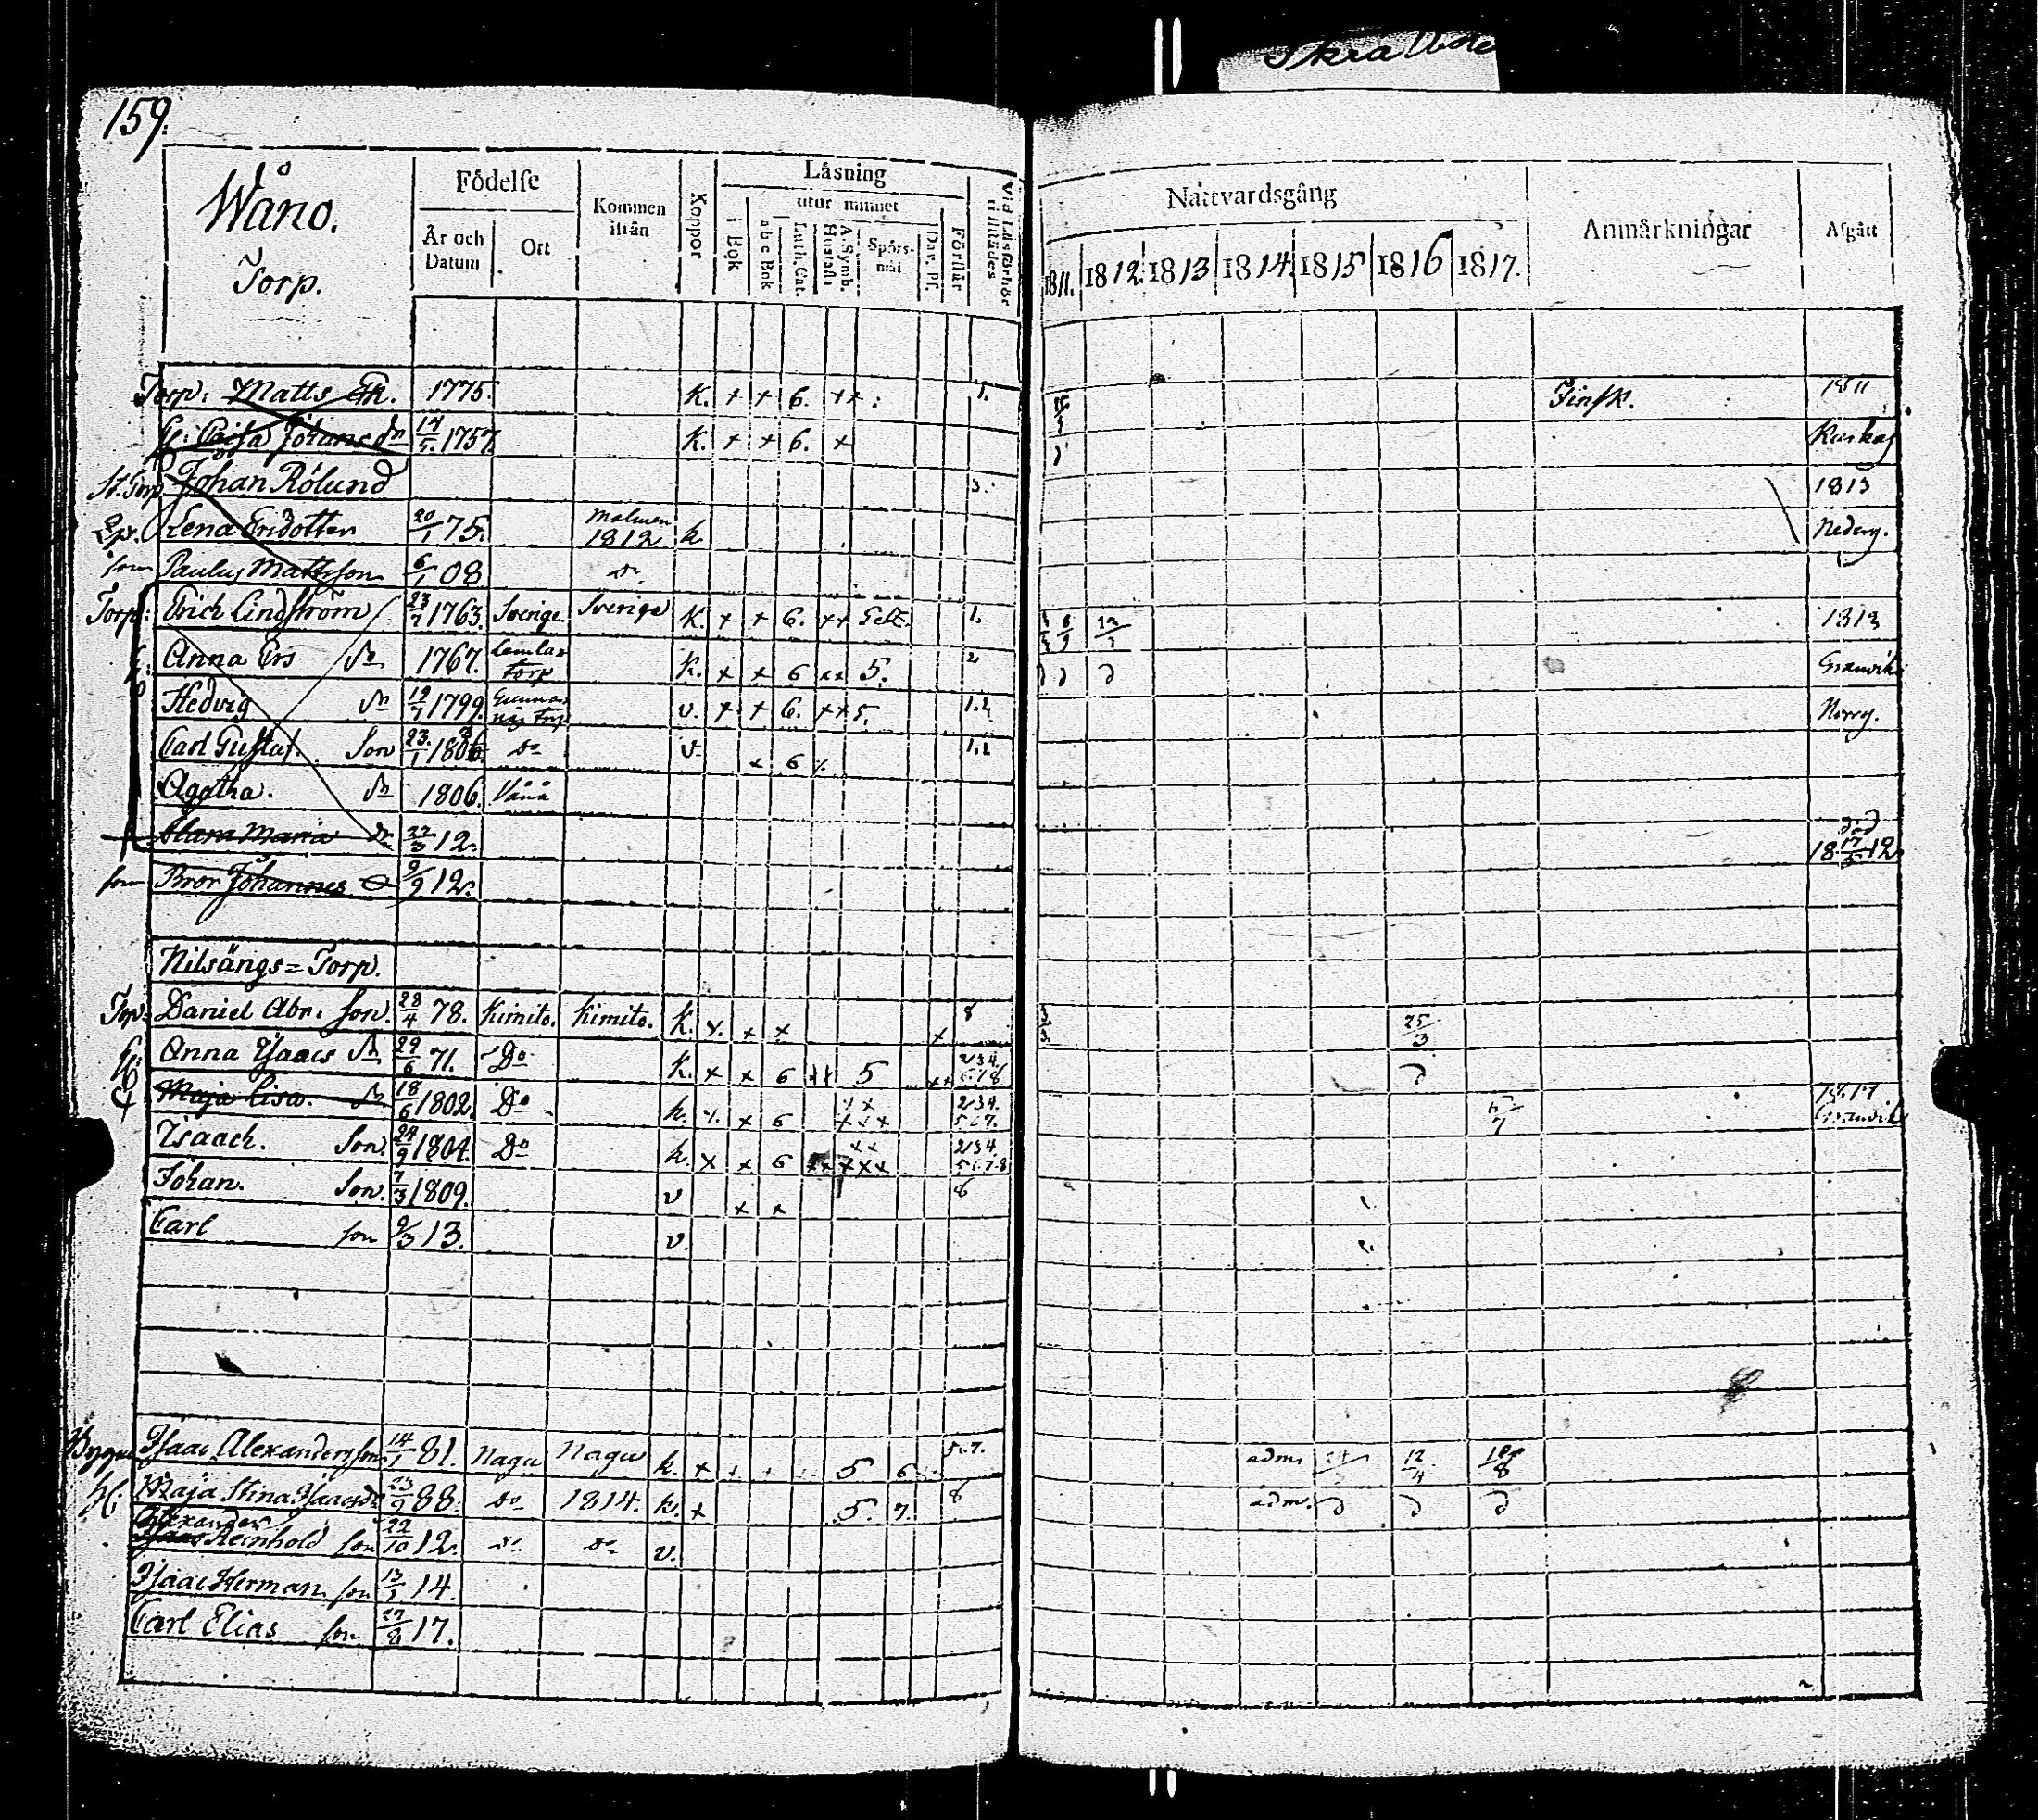 Skrallbole
159.
Wåno.
Torp.
Födelse
År och Datum
Ort
Kommen ifrån
Koppor
Läsning
i Bok
utur minnet
a b c Bok
Luth. Cat.
A. Symb. Hustafl
Spörs-mål
Dav. Ps.
Förstår
Vid Läsförhör tillstädes
Nattvardsgång
1811. 1812. 1813 1814. 1815 1816 1817.
Anmärkningar
Afgått
Torp: Matts Erk. 1775. K. + + 6. ++ 1. Finsk. 1811
H: Cajsa Johansdn 14/5 1757. K. + + 6. + Kuskas
St. Torp Johan Rölund 3. 1813
Lena Ersdotter 20/1 75. Malmen 1812 k Nederg.
son Paulus Mattsson 6/1 08 do
Torp: Erich Lindström 23/7 1763. Sverige. Sverige K. + + 6. ++ 1. 1813
H: Anna Ers dr 1767. Lemlax torp K. + + 6 ++ 5. 2 Granvik
Hedvig dr 12/7 1799. Gunnarsnäs torp v. + + 6. ++ 5. 1.2 Norrg.
Carl Gustaf. Son 23/1 1803. do v + 6 1.2
Agatha. dr 1806. Vånå
Clara Maria dr 22/3 12. död 18 17/5 12
son Bror Johannes 9/9 12.
Nilsängs=Torp.
Torp: Daniel Abr. son. 28/4 78. Kimito. Kimito. K. x. + x + 8 25/3
H: Anna Isaacs dr 29/6 71. Do K. x x 6 ++ 5 ++ 234 678
Maja Lisa. dr 18/6 1802. Do k. x. x 6 xx xxx 234. 567. 6/7 1817 Granvik
Isaach. Son. 24/9 1804. Do k. x x 6 xx xxx 234 5678
Johan. Son. 7/3 1809. v x x 8
Carl son 9/3 13. v.
Isaac Alexandersson 14/1 81. Nagu Nagu k. + 5 6 5.7. adm. 12/4 18/8
H: Maja Stina Isaacsdr 23/9 88. do 1814. k. + 5. 7. 8 adm.
Alexander
Reinhold son 22/10 12. do do v.
Isaac Herman son 13/1 14.
Carl Elias son 27/8 17.